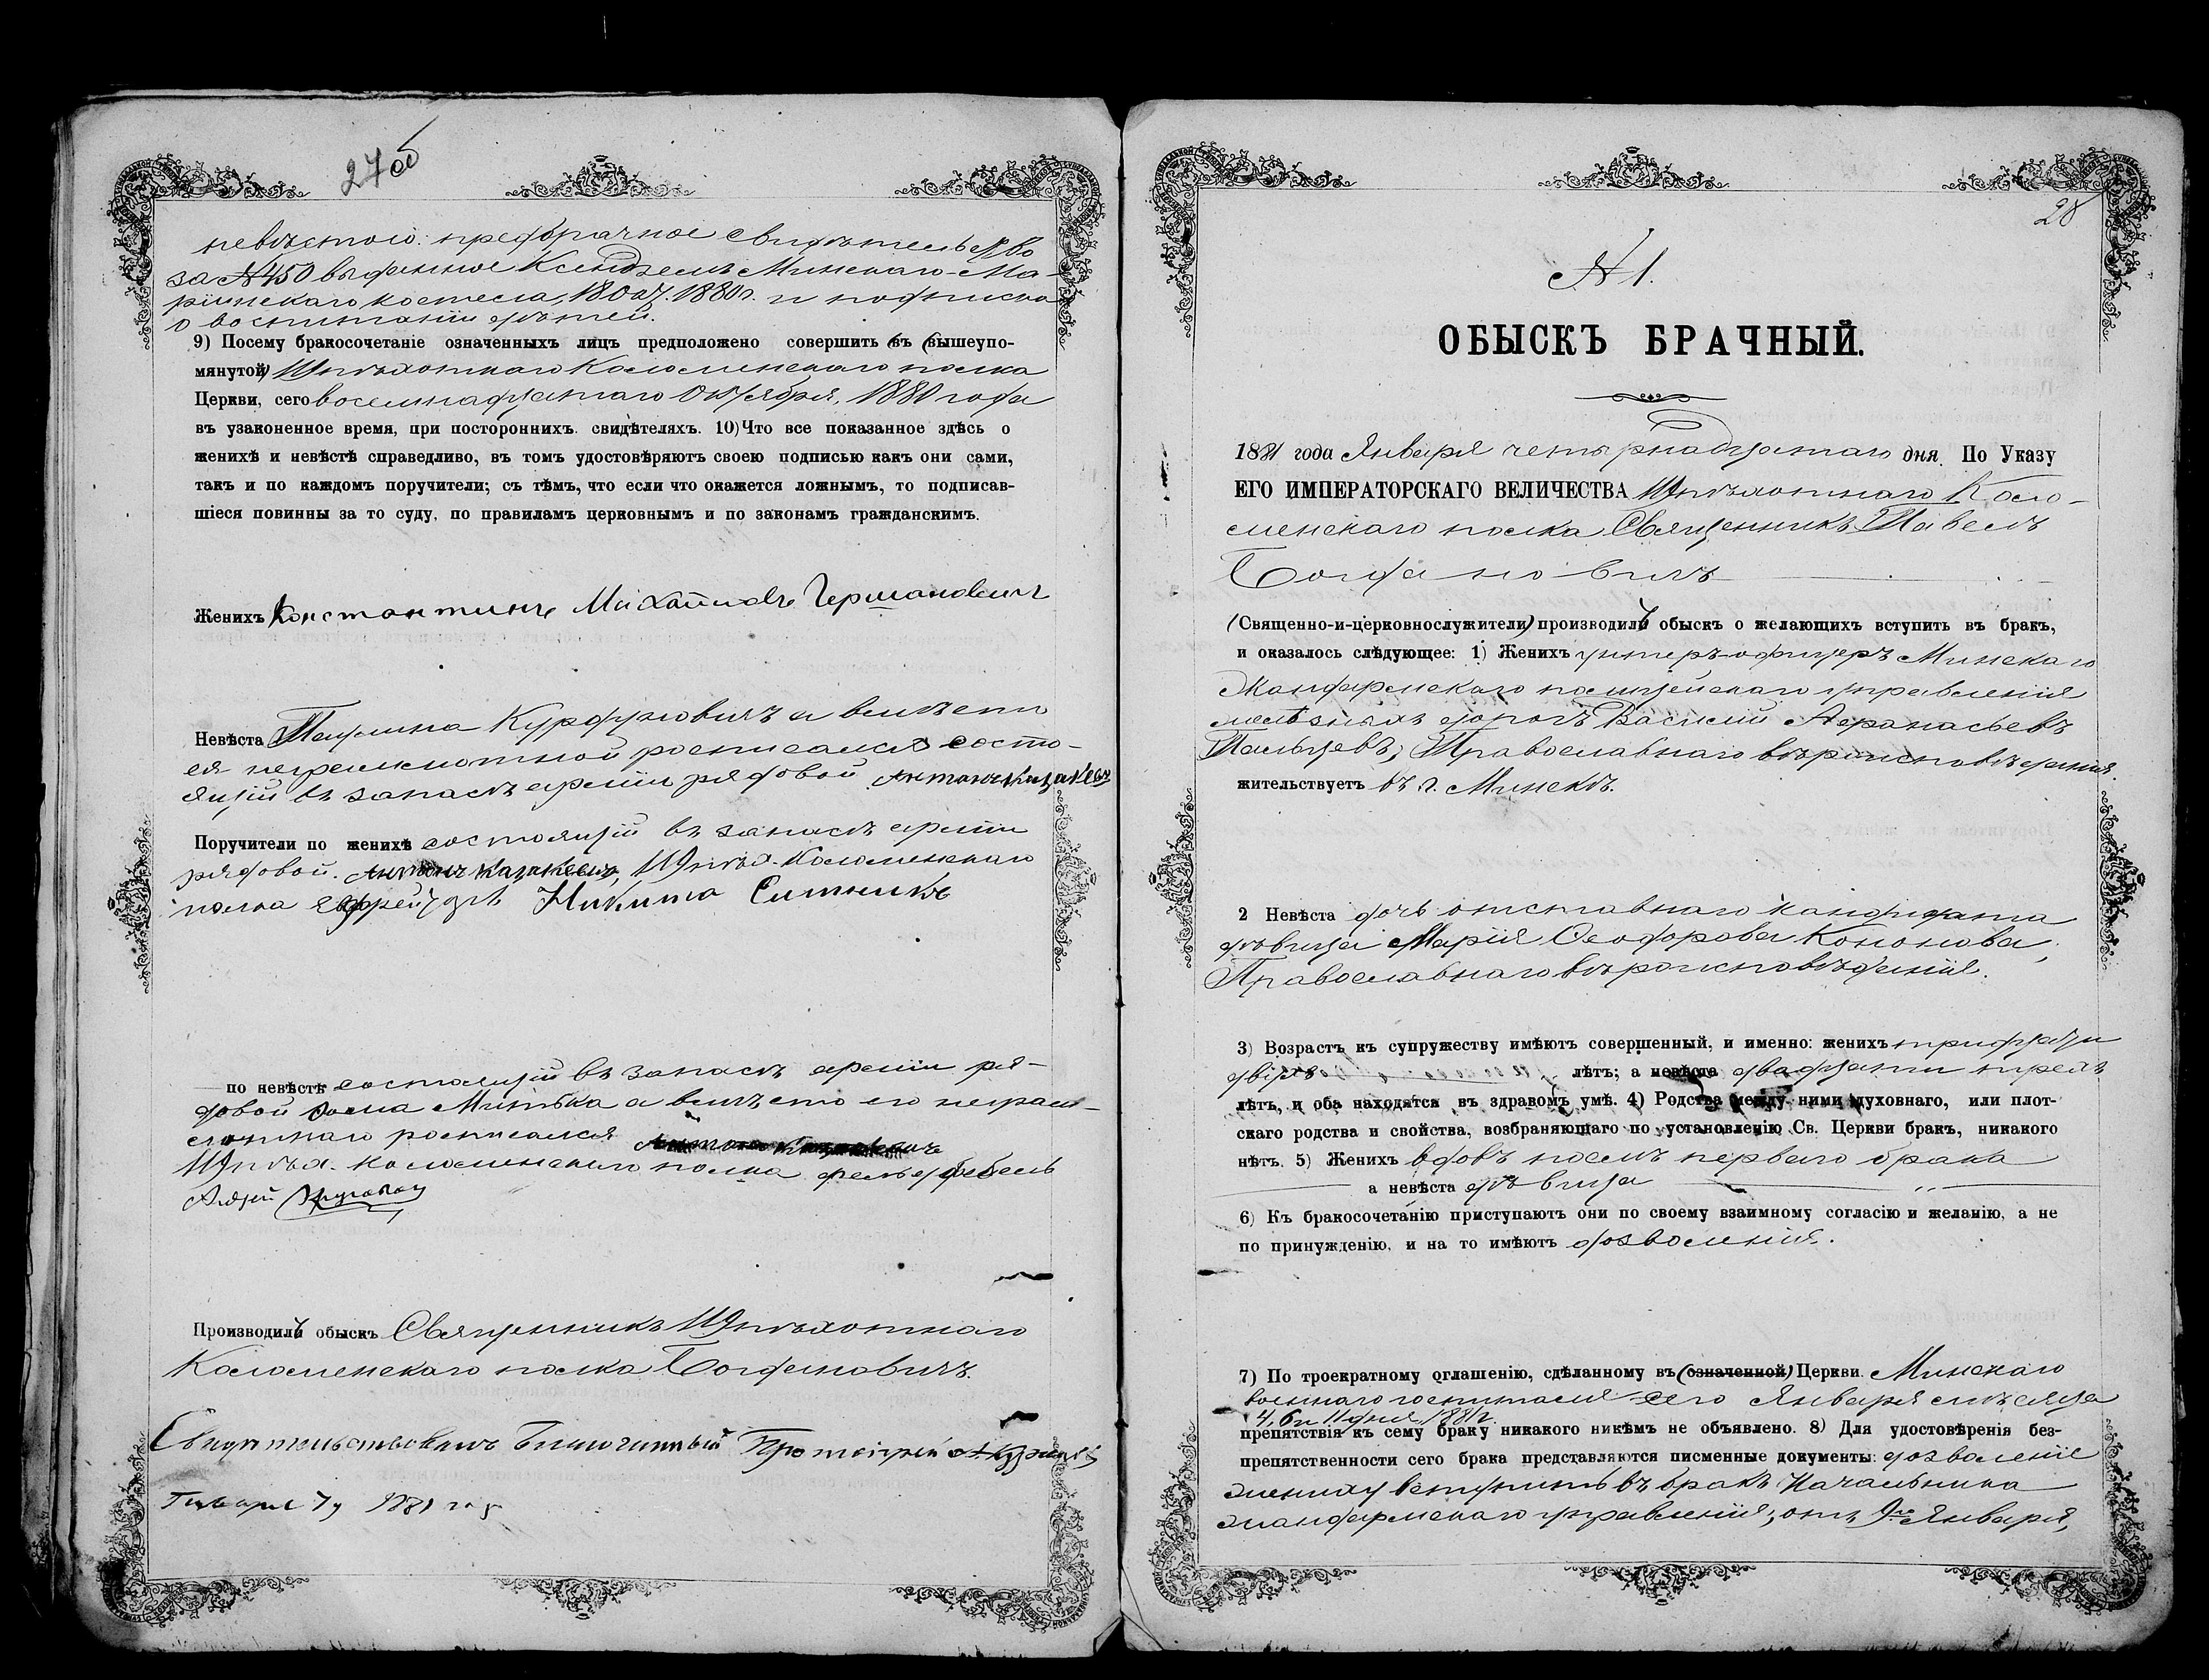 27 об
невѣстою: предбрачное свидѣтельство
за №450 выданное Ксендземъ Минскаго Ма-
ріинскаго костела, 18 Окт. 1880 г. и подписка
о воспитаніи дѣтей.
9) Посему бракосочетаніе означенныхъ лицъ предположено совершить въ (вышеупо-
мянутой) 119 пѣхотнаго Коломенскаго полка
Церкви, сего восемнадцатаго Октября, 1880 года
въ узаконенное время, при постороннихъ свидѣтеляхъ. 10) Что все показанное здѣсь о
женихѣ и невѣстѣ справедливо, въ томъ удостовѣряютъ своею подписью какъ они сами,
такъ и по каждомъ поручители; съ тѣмъ, что если что окажется ложнымъ, то подписав-
шіеся повинны за то суду, по правиламъ церковнымъ и по законамъ гражданскимъ.
Женихъ Константинъ Михайловъ Германовичъ
Невѣста Курдуковичъ а вмѣсто
ея неграмотной росписался состо-
ящій въ запасѣ арміи рядовой Антонъ
Поручители по женихѣ состоящій въ запасѣ арміи
рядовой Антонъ 119 пѣх. Коломенскаго
полка Ефрейторъ Никита Ситникъ
по невѣстѣ состоящій въ запасѣ арміи ря-
довой Минька а вмѣсто его неграм-
отнаго росписался Антонъ
119 пѣх. Коломенскаго полка фельдфебель
Производилъ обыскъ Священникъ 119 пѣхотнаго
Коломенскаго полка Богдановичъ.
Свидѣтельствовалъ Благочинный Протоіерей
Января 1881 года
28
№ 1.
ОБЫСКЪ БРАЧНЫЙ.
1881 года Января четырнадцатаго дня. По Указу
ЕГО ИМПЕРАТОРСКАГО ВЕЛИЧЕСТВА 119 пѣхотнаго Коло-
менскаго полка Священникъ Павелъ
Богдановичъ
(Священно-и-церковнослужители) производилъ обыскъ о желающихъ вступить въ бракъ,
и оказалось слѣдующее: 1) Женихъ унтеръ-офицеръ Минскаго
Жандармскаго полицейскаго управленія
желѣзныхъ дорогъ Василій Афанасьевъ
Пальцевъ, Православнаго вѣроисповѣданія.
жительствуетъ въ г. Минскѣ.
2 Невѣста дочь отставнаго кандидата
дѣвица Марія Ѳеодорова Кононова,
Православнаго вѣроисповѣданія.
3) Возрастъ къ супружеству имѣютъ совершенный, и именно: женихъ тридцати
двухъ лѣтъ; а невѣста двадцати трехъ
лѣтъ, и оба находятся въ здравомъ умѣ. 4) Родства между ними духовнаго, или плот-
скаго родства и свойства, возбраняющаго по установленію Св. Церкви бракъ, никакого
нѣтъ. 5) Женихъ вдовъ послѣ перваго брака
а невѣста дѣвица
6) Къ бракосочетанію приступаютъ они по своему взаимному согласію и желанію, а не
по принужденію, и на то имѣютъ дозволенія.
7) По троекратному оглашенію, сдѣланному въ (означенной) Церкви Минскаго
военнаго госпиталя сего Января мѣсяца
4, 6 и 11 дня 1881 г.
препятствія къ сему браку никакого никѣмъ не объявлено. 8) Для удостовѣренія без-
препятственности сего брака представляются писменные документы: дозволеніе
жениху вступить въ бракъ Начальника
жандармскаго управленія, отъ 9го Января,